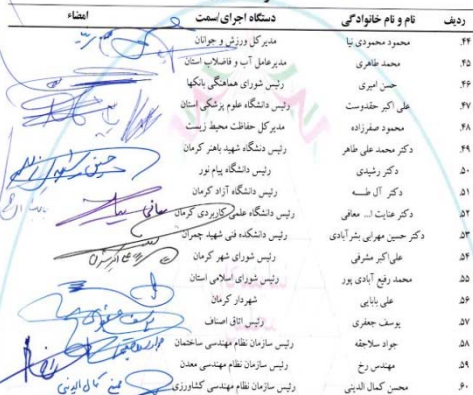 ردیف نام و نام خانوادگی دستگاه اجرای/سمت امضاء
۴۴. محمود محمودی نیا مدیرکل ورزش و جوانان
۴۵. محمد طاهری مدیرعامل آب و فاضلاب استان
۴۶. حسن امیری رئیس شورای هماهنگی بانکها
۴۷. علی اکبر حقدوست رئیس دانشگاه علوم پزشکی استان
۴۸. محمود صفرزاده مدیرکل حفاظت محیط زیست
۴۹. دکتر محمد علی طاهر رئیس دنشگاه شهید باهنر کرمان
۵۰. دکتر رشیدی رئیس دانشگاه پیام نور
۵۱. دکتر آل طـــه رئیس دانشگاه آزاد کرمان
۵۲. دکتر عنایت ا... معافی رئیس دانشگاه علمی کاربردی کرمان
۵۳. دکتر حسین مهرابی بشرآبادی رئیس دانشکده فنی شهید چمران
۵۴. علی‌اکبر مشرفی رئیس شورای شهر کرمان
۵۵. محمد رفیع آبادی پور رئیس شورای اسلامی استان
۵۶. علی بابایی شهردار کرمان
۵۷. یوسف جعفری رئیس اتاق اصناف
۵۸. جواد سلاجقه رئیس سازمان نظام مهندسی ساختمان
۵۹. مهندس رخ رئیس سازمان نظام مهندسی معدن
۶۰. محسن کمال الدینی رئیس سازمان نظام مهندسی کشاورزی